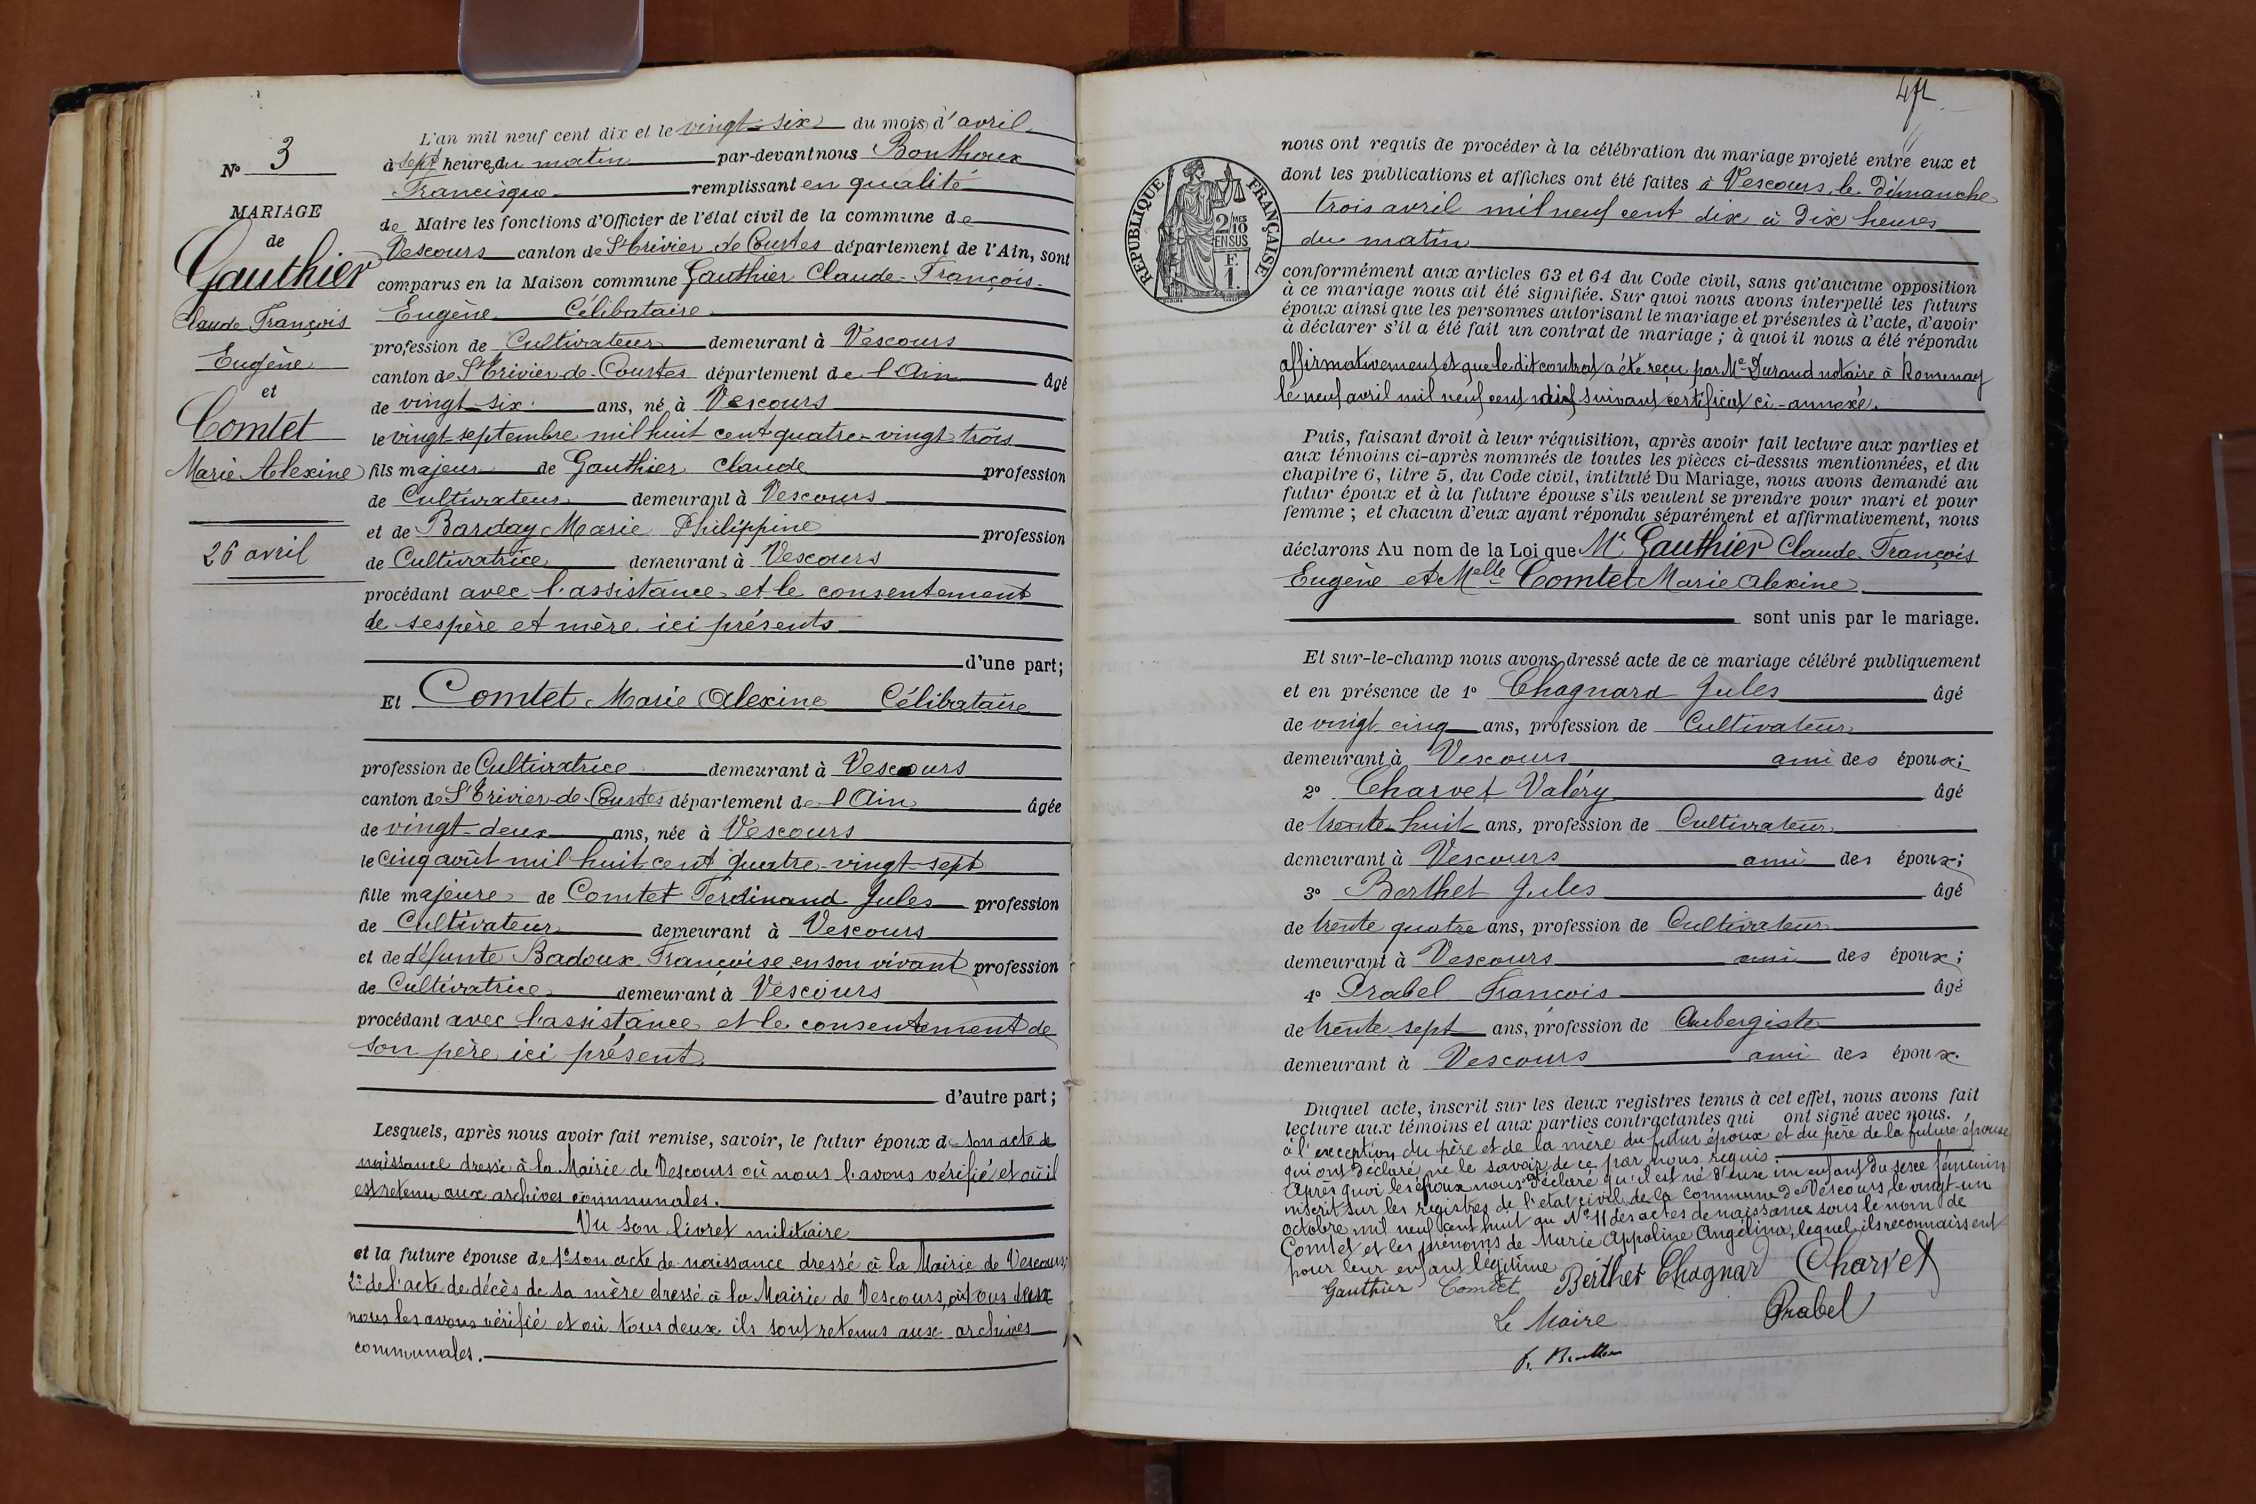 N° 3
MARIAGE
de
Gauthier
Claude François
Eugène
et
Comtet
Marie Alexine
26 avril
L'an mil neuf cent dix et le vingt-six du mois d'avril
à sept heures du matin par-devant nous Bonthoux
Francisque remplissant en qualité
de Maire les fonctions d'Officier de l'état civil de la commune de
Vescours canton de St Trivier de Courtes département de l'Ain, sont
comparus en la Maison commune Gauthier Claude-François-
Eugène Célibataire
profession de Cultivateur demeurant à Vescours
canton de St Trivier-de-Courtes département de l'Ain âgé
de vingt-six ans, né à Vescours
le vingt septembre mil huit cent quatre-vingt trois
fils majeur de Gauthier Claude profession
de Cultivateur demeurant à Vescours
et de Barday Marie Philippine profession
de Cultivatrice demeurant à Vescours
procédant avec l'assistance et le consentement
de ses père et mère ici présents
d'une part;
Et Comtet Marie Alexine Célibataire
profession de Cultivatrice demeurant à Vescours
canton de St Trivier-de-Courtes département de l'Ain âgée
de vingt-deux ans, née à Vescours
le Cinq août mil huit cent quatre-vingt-sept
fille majeure de Comtet Ferdinand Jules profession
de Cultivateur demeurant à Vescours
et de défunte Badoux Françoise en son vivant profession
de Cultivatrice demeurant à Vescours
procédant avec l'assistance et le consentement de
son père ici présent
d'autre part;
Lesquels, après nous avoir fait remise, savoir, le futur époux de son acte de
naissance dressé à la Mairie de Vescours où nous l'avons vérifié et où il
est retenu aux archives communales.
Vu son livret militaire
et la future épouse de 1° son acte de naissance dressé à la Mairie de Vescours;
2° de l'acte de décès de sa mère dressé à la Mairie de Vescours, où tous deux
nous les avons vérifié et où tous deux ils sont retenus aux archives
communales.
nous ont requis de procéder à la célébration du mariage projeté entre eux et
dont les publications et affiches ont été faites à Vescours, le Dimanche
trois avril mil neuf cent dix à Dix heures
du matin
RÉPUBLIQUE FRANÇAISE
2/10
EN SUS
F.
1.
conformément aux articles 63 et 64 du Code civil, sans qu'aucune opposition
à ce mariage nous ait été signifiée. Sur quoi nous avons interpellé les futurs
époux ainsi que les personnes autorisant le mariage et présentes à l'acte, d'avoir
à déclarer s'il a été fait un contrat de mariage; à quoi il nous a été répondu
affirmativement et que le dit contrat a été reçu par Me Durand notaire à Romenay
le neuf avril mil neuf cent dix suivant certificat ci-annexé.
Puis, faisant droit à leur réquisition, après avoir fait lecture aux parties et
aux témoins ci-après nommés de toutes les pièces ci-dessus mentionnées, et du
chapitre 6, titre 5, du Code civil, intitulé Du Mariage, nous avons demandé au
futur époux et à la future épouse s'ils veulent se prendre pour mari et pour
femme; et chacun d'eux ayant répondu séparément et affirmativement, nous
déclarons Au nom de la Loi que Mr Gauthier Claude-François
Eugène et Melle Comtet Marie Alexine
sont unis par le mariage.
Et sur-le-champ nous avons dressé acte de ce mariage célébré publiquement
et en présence de 1° Chagnard Jules âgé
de vingt-cinq ans, profession de Cultivateur
demeurant à Vescours ami des époux;
2° Charvet Valéry âgé
de trente-huit ans, profession de Cultivateur
demeurant à Vescours ami des époux;
3° Berthet Jules âgé
de trente quatre ans, profession de Cultivateur
demeurant à Vescours ami des époux;
4° Prabel François âgé
de trente-sept ans, profession de Aubergiste
demeurant à Vescours ami des époux.
Duquel acte, inscrit sur les deux registres tenus à cet effet, nous avons fait
lecture aux témoins et aux parties contractantes qui ont signé avec nous.
à l'exception du père et de la mère du futur époux et du père de la future épouse
qui ont déclaré ne le savoir de ce par nous requis
Après quoi les époux nous ont déclaré qu'il est né d'eux un enfant du sexe féminin
inscrit sur les registres de l'état civil de la Commune de Vescours le vingt-un
octobre mil neuf cent huit au N° 11 des actes de naissance sous le nom de
Comtet et les prénoms de Marie Appoline Angélina, lequel ils reconnaissent
pour leur enfant légitime
Gauthier Comtet Berthet Chagnard Charvet
Le Maire Prabel